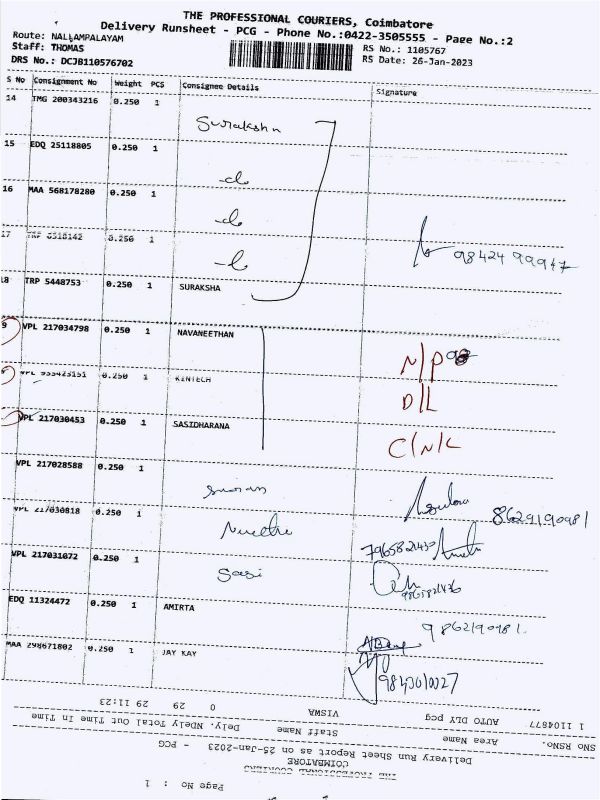 THE PROFESSIONAL COURIERS, Coimbatore
Delivery Runsheet - PCG - Phone No.:0422-3505555 - Page No.:2
Route: NALLAMPALAYAM RS No.: 1105767
Staff: THOMAS RS Date: 26-Jan-2023
DRS No.: DCJB110576702
S No Consignment No Weight PCS Consignee Details Signature
14 TMG 200343216 0.250 1 Suraksha
15 EDQ 25118805 0.250 1
16 MAA 568178280 0.250 1
17 0.250 1 98424 99947
18 TRP 5448753 0.250 1 SURAKSHA
9 VPL 217034798 0.250 1 NAVANEETHAN N/P
VPL 0.250 1 KINTECH D/L
VPL 217030453 0.250 1 SASIDHARANA C/N/L
VPL 217028588 0.250 1 8629190981
VPL 217030818 0.250 1
VPL 217031072 0.250 1 Sasi
EDQ 11324472 0.250 1 AMIRTA
MAA 298671802 0.250 1 JAY KAY
Page No : 1
THE PROFESSIONAL COURIERS
COIMBATORE
Delivery Run Sheet Report as on 25-Jan-2023 - PCG
SNO RSNo. Area Name Staff Name Dely. NDely Total Out Time In Time
1 1104877 AUTO DLY pcg VISWA 0 29 29 11:23